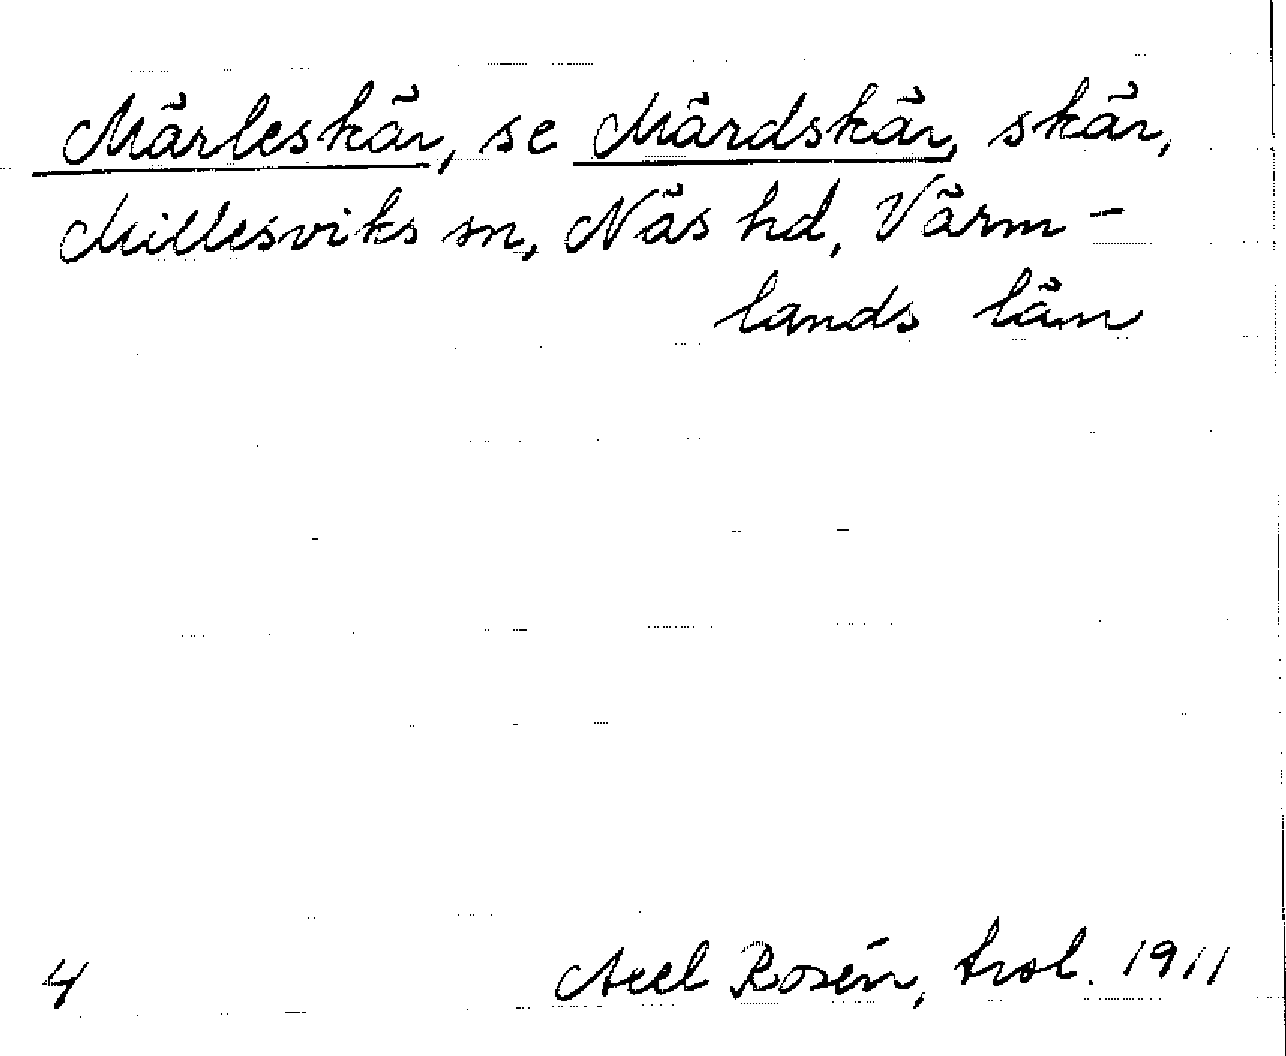 Märleskär, se Märdskär, skär,
Millesviks sn, Näs hd, Värm-
lands län
4 Axel Rosén, trol. 1911